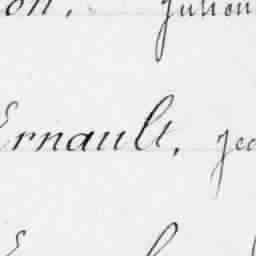 on, Julien
Ernault, Jea